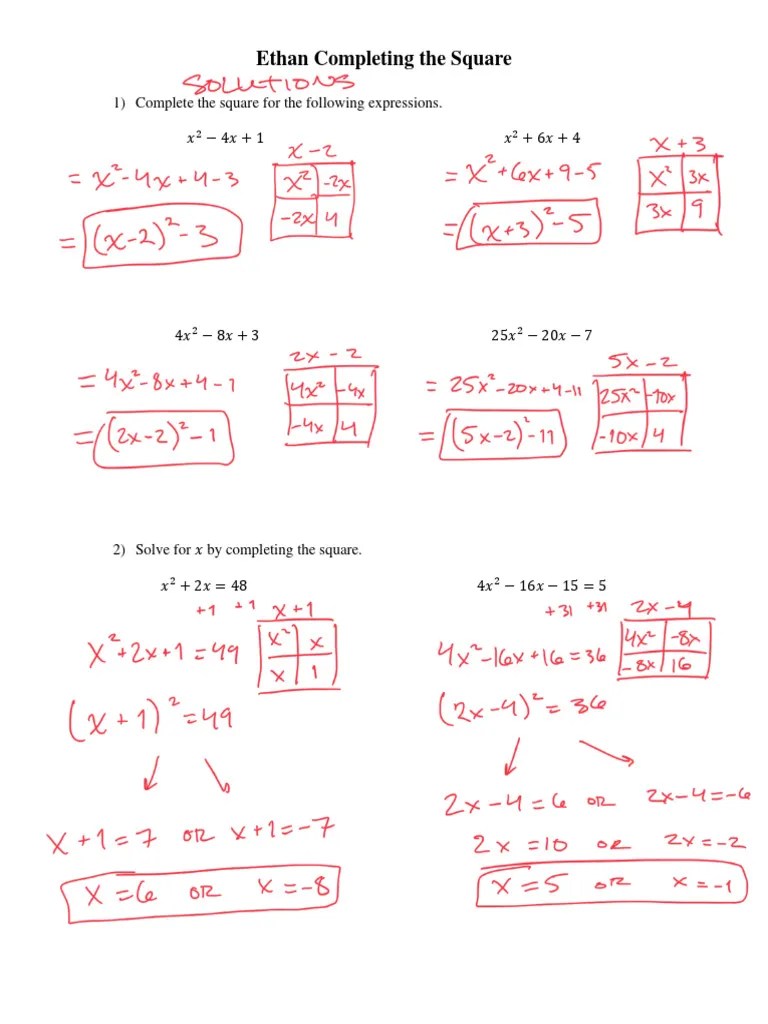 Ethan Completing the Square
SOLUTIONS
1) Complete the square for the following expressions.
x² − 4x + 1
x − 2
= x² − 4x + 4 − 3
x² −2x
−2x 4
= (x − 2)² − 3
x² + 6x + 4
x + 3
= x² + 6x + 9 − 5
x² 3x
3x 9
= (x + 3)² − 5
4x² − 8x + 3
2x − 2
= 4x² − 8x + 4 − 1
4x² −4x
−4x 4
= (2x − 2)² − 1
25x² − 20x − 7
5x − 2
= 25x² − 20x + 4 − 11
25x² −10x
−10x 4
= (5x − 2)² − 11
2) Solve for x by completing the square.
x² + 2x = 48
+1 +1
x + 1
x² + 2x + 1 = 49
x² x
x 1
(x + 1)² = 49
x + 1 = 7 OR x + 1 = −7
x = 6 OR x = −8
4x² − 16x − 15 = 5
+31 +31
2x − 4
4x² − 16x + 16 = 36
4x² −8x
−8x 16
(2x − 4)² = 36
2x − 4 = 6 OR 2x − 4 = −6
2x = 10 OR 2x = −2
x = 5 OR x = −1